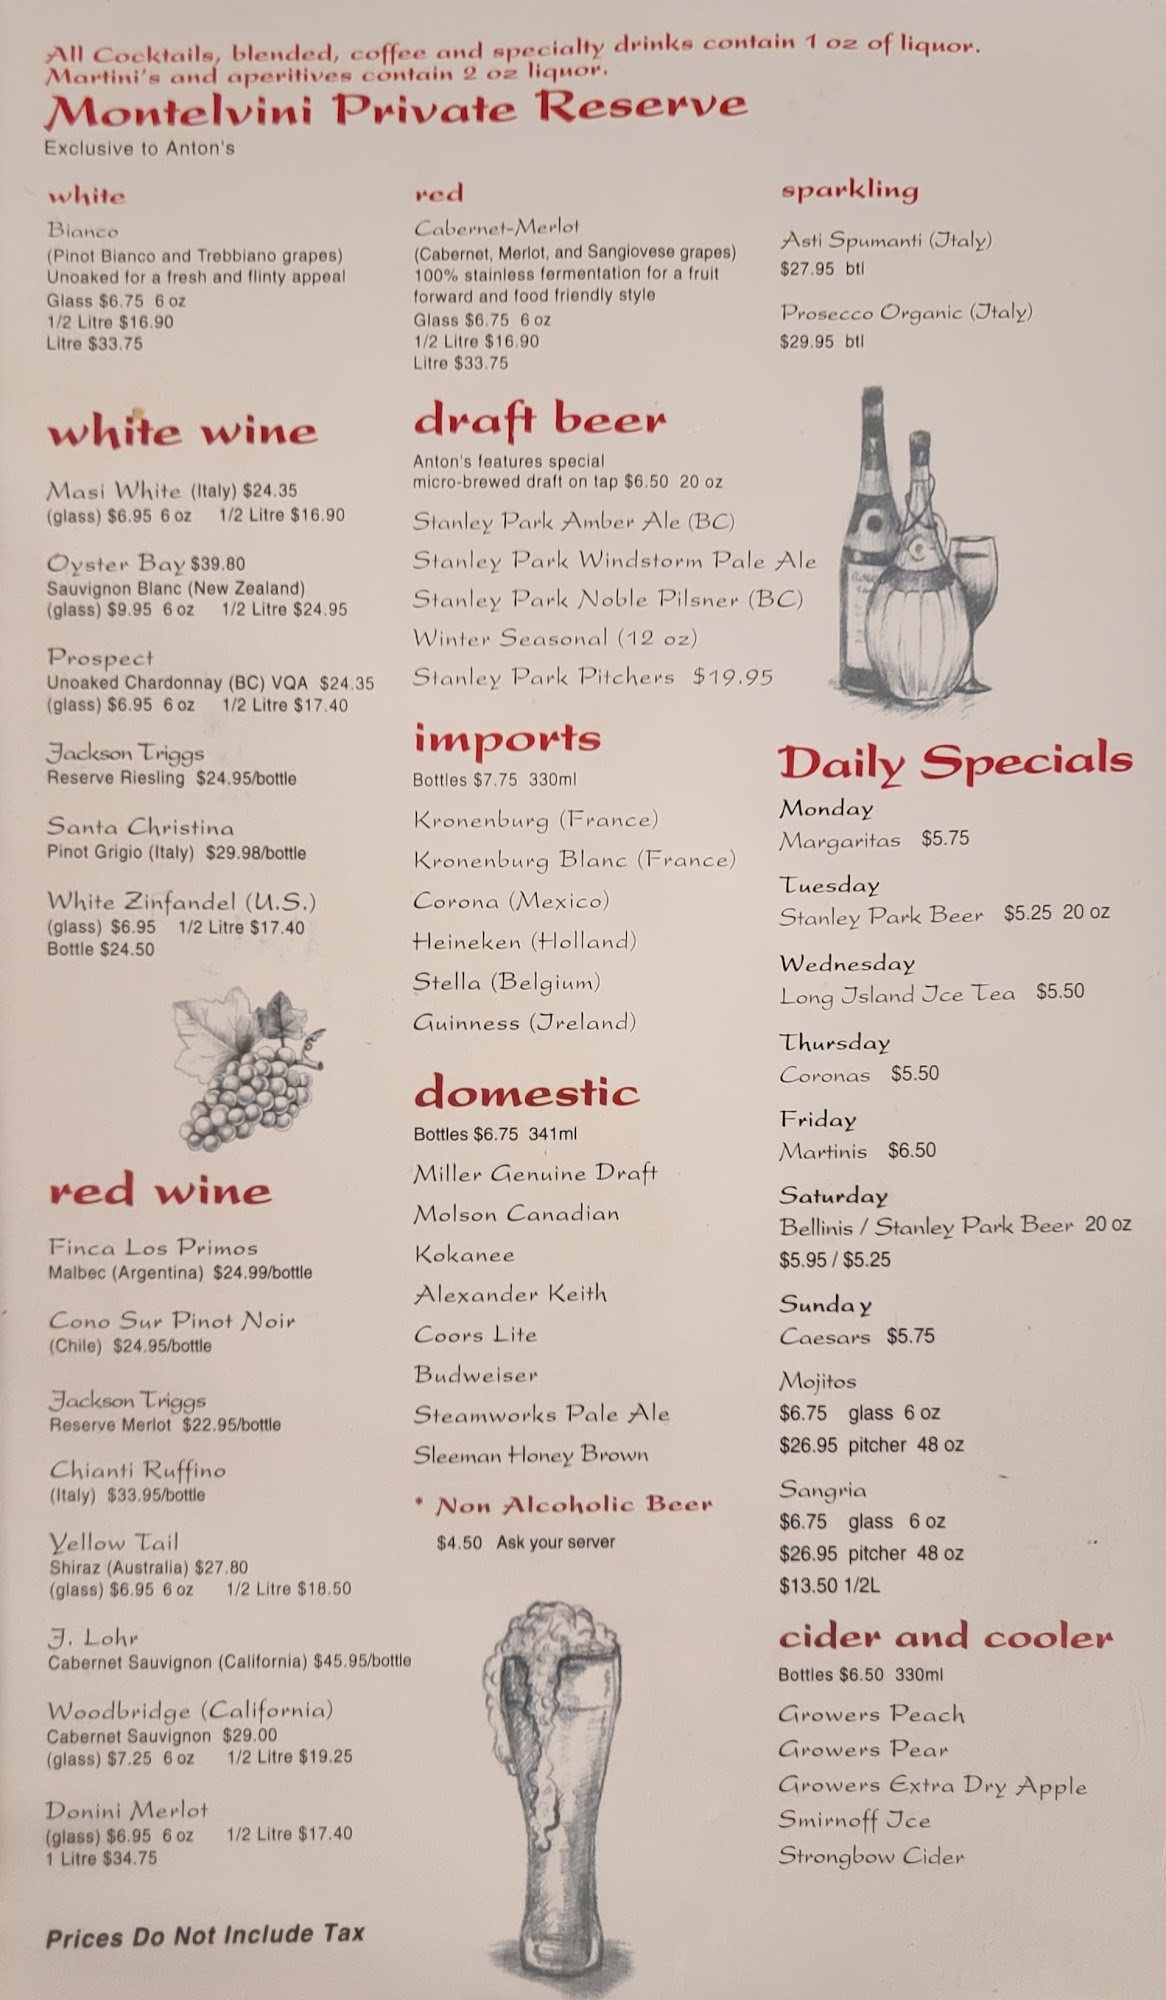 All Cocktails, blended, coffee and specialty drinks contain 1 oz of liquor.
Martini's and aperitives contain 2 oz liquor.
Montelvini Private Reserve
Exclusive to Anton's
white
Bianco
(Pinot Bianco and Trebbiano grapes)
Unoaked for a fresh and flinty appeal
Glass $6.75 6 oz
1/2 Litre $16.90
Litre $33.75
red
Cabernet-Merlot
(Cabernet, Merlot, and Sangiovese grapes)
100% stainless fermentation for a fruit
forward and food friendly style
Glass $6.75 6 oz
1/2 Litre $16.90
Litre $33.75
sparkling
Asti Spumanti (Italy)
$27.95 btl
Prosecco Organic (Italy)
$29.95 btl
white wine
Masi White (Italy) $24.35
(glass) $6.95 6 oz 1/2 Litre $16.90
Oyster Bay $39.80
Sauvignon Blanc (New Zealand)
(glass) $9.95 6 oz 1/2 Litre $24.95
Prospect
Unoaked Chardonnay (BC) VQA $24.35
(glass) $6.95 6 oz 1/2 Litre $17.40
Jackson Triggs
Reserve Riesling $24.95/bottle
Santa Christina
Pinot Grigio (Italy) $29.98/bottle
White Zinfandel (U.S.)
(glass) $6.95 1/2 Litre $17.40
Bottle $24.50
red wine
Finca Los Primos
Malbec (Argentina) $24.99/bottle
Cono Sur Pinot Noir
(Chile) $24.95/bottle
Jackson Triggs
Reserve Merlot $22.95/bottle
Chianti Ruffino
(Italy) $33.95/bottle
Yellow Tail
Shiraz (Australia) $27.80
(glass) $6.95 6 oz 1/2 Litre $18.50
J. Lohr
Cabernet Sauvignon (California) $45.95/bottle
Woodbridge (California)
Cabernet Sauvignon $29.00
(glass) $7.25 6 oz 1/2 Litre $19.25
Donini Merlot
(glass) $6.95 6 oz 1/2 Litre $17.40
1 Litre $34.75
Prices Do Not Include Tax
draft beer
Anton's features special
micro-brewed draft on tap $6.50 20 oz
Stanley Park Amber Ale (BC)
Stanley Park Windstorm Pale Ale
Stanley Park Noble Pilsner (BC)
Winter Seasonal (12 oz)
Stanley Park Pitchers $19.95
imports
Bottles $7.75 330ml
Kronenburg (France)
Kronenburg Blanc (France)
Corona (Mexico)
Heineken (Holland)
Stella (Belgium)
Guinness (Ireland)
domestic
Bottles $6.75 341ml
Miller Genuine Draft
Molson Canadian
Kokanee
Alexander Keith
Coors Lite
Budweiser
Steamworks Pale Ale
Sleeman Honey Brown
* Non Alcoholic Beer
$4.50 Ask your server
Daily Specials
Monday
Margaritas $5.75
Tuesday
Stanley Park Beer $5.25 20 oz
Wednesday
Long Island Ice Tea $5.50
Thursday
Coronas $5.50
Friday
Martinis $6.50
Saturday
Bellinis / Stanley Park Beer 20 oz
$5.95 / $5.25
Sunday
Caesars $5.75
Mojitos
$6.75 glass 6 oz
$26.95 pitcher 48 oz
Sangria
$6.75 glass 6 oz
$26.95 pitcher 48 oz
$13.50 1/2L
cider and cooler
Bottles $6.50 330ml
Growers Peach
Growers Pear
Growers Extra Dry Apple
Smirnoff Ice
Strongbow Cider